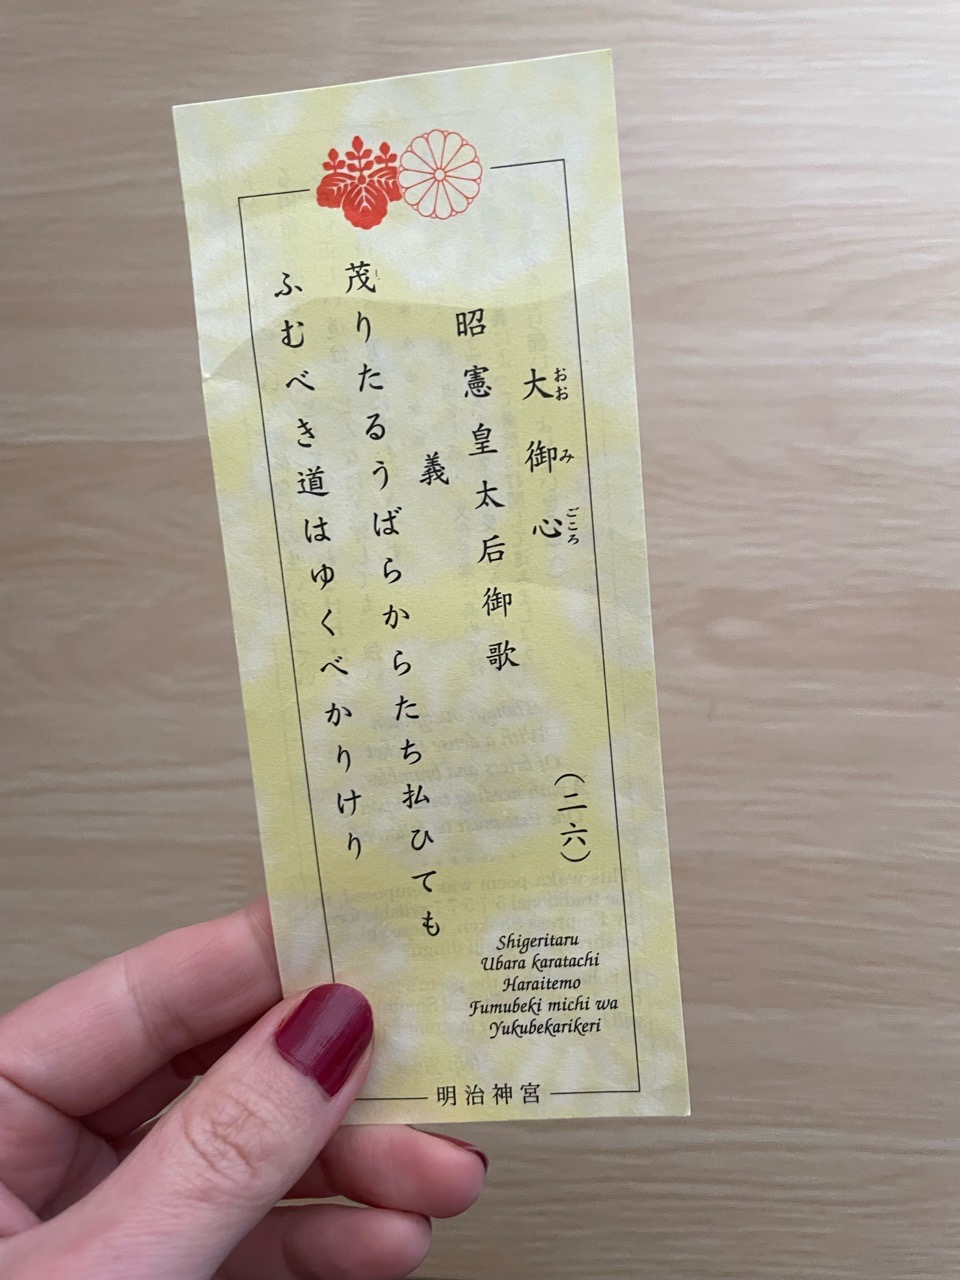 大御心
おお み ごころ
昭憲皇太后御歌
(二六)
義
茂りたるうばらからたち払ひても
し
ふむべき道はゆくべかりけり
Shigeritaru
Ubara karatachi
Haraitemo
Fumubeki michi wa
Yukubekarikeri
明治神宮